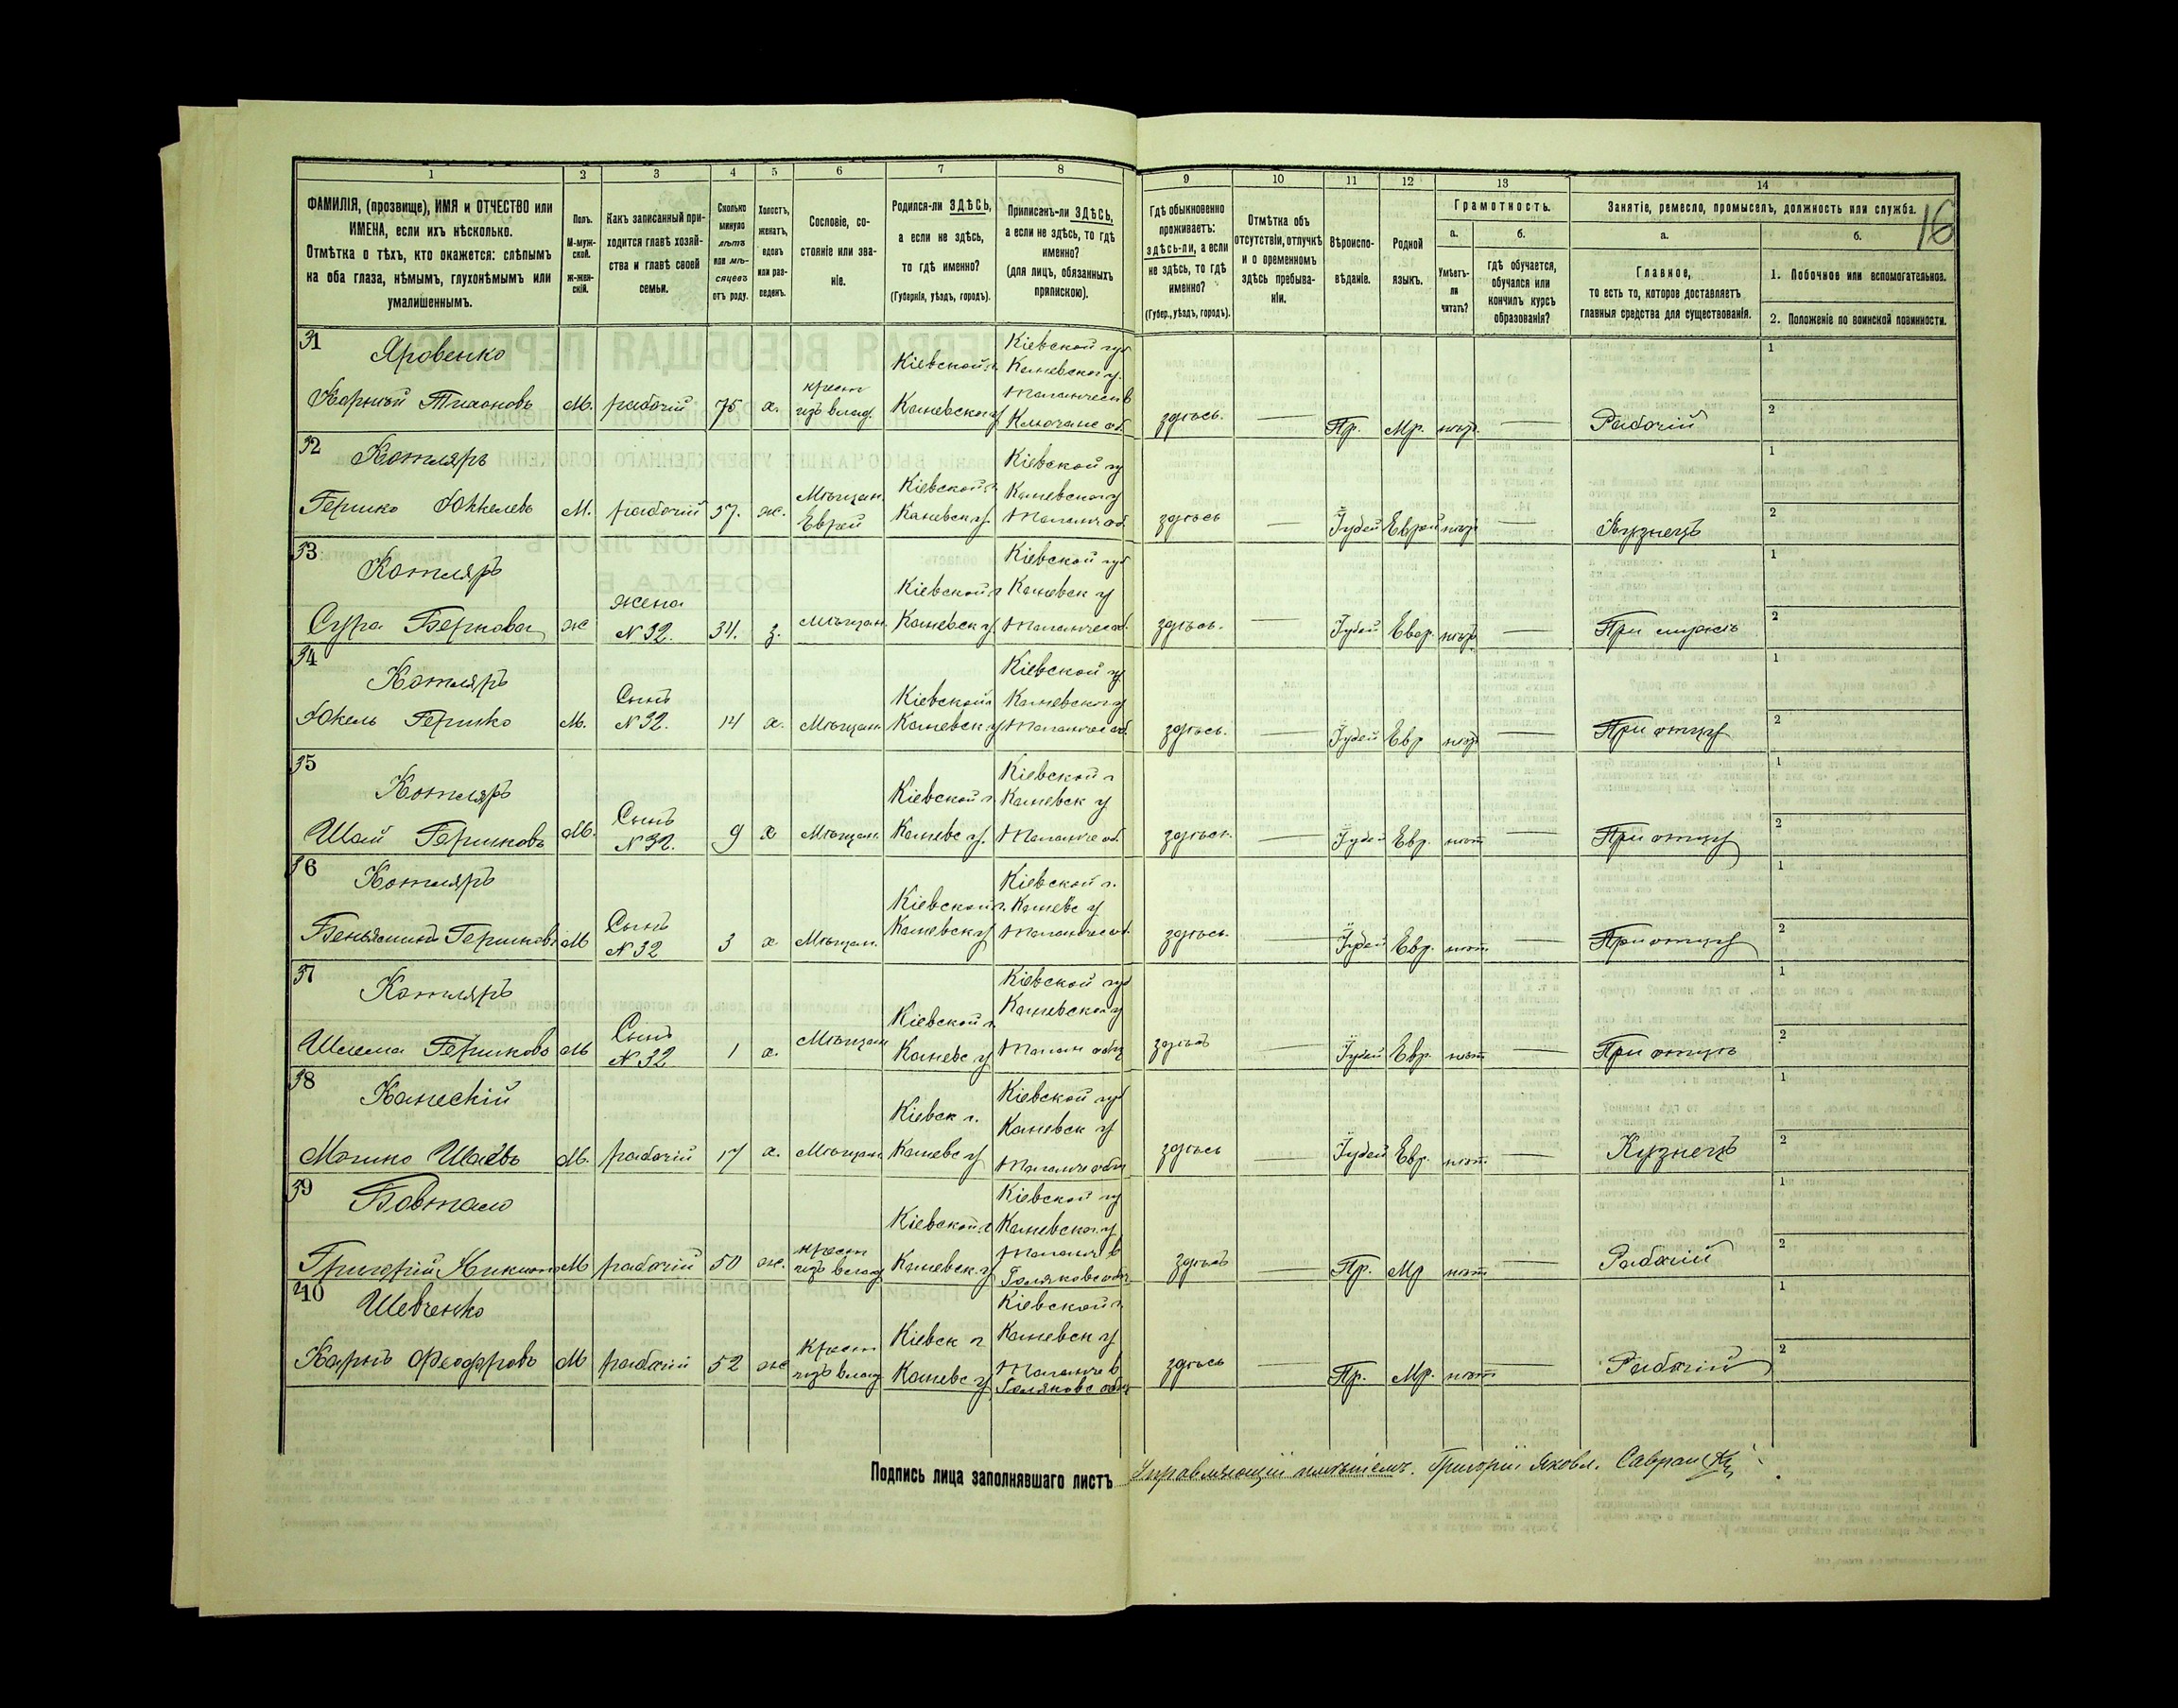 16
1 2 3 4 5 6 7 8 9 10 11 12 13 14
ФАМИЛІЯ, (прозвище), ИМЯ и ОТЧЕСТВО или
ИМЕНА, если ихъ нѣсколько.
Отмѣтка о тѣхъ, кто окажется: слѣпымъ
на оба глаза, нѣмымъ, глухонѣмымъ или
умалишеннымъ.
Полъ.
М-муж-
ской.
ж-жен-
скій.
Какъ записанный при-
ходится главѣ хозяй-
ства и главѣ своей
семьи.
Сколько
минуло
лѣтъ
или мѣ-
сяцевъ
отъ роду.
Холостъ,
женатъ,
вдовъ
или раз-
веденъ.
Сословіе, со-
стояніе или зва-
ніе.
Родился-ли ЗДѢСЬ,
а если не здѣсь,
то гдѣ именно?
(Губернія, уѣздъ, городъ).
Приписанъ-ли ЗДѢСЬ,
а если не здѣсь, то гдѣ
именно?
(для лицъ, обязанныхъ
припискою).
Гдѣ обыкновенно
проживаетъ:
здѣсь-ли, а если
не здѣсь, то гдѣ
именно?
(Губер., уѣздъ, городъ).
Отмѣтка объ
отсутствіи, отлучкѣ
и о временномъ
здѣсь пребыва-
ніи.
Вѣроиспо-
вѣданіе.
Родной
языкъ.
Грамотность.
а.
Умѣетъ-
ли
читать?
б.
гдѣ обучается,
обучался или
кончилъ курсъ
образованія?
Занятіе, ремесло, промыселъ, должность или служба.
а.
Главное,
то есть то, которое доставляетъ
главныя средства для существованія.
б.
1. Побочное или вспомогательное.
2. Положеніе по воинской повинности.
31
Яровенко
Корній Тихоновъ М. рабочій 75 х. крест изъ влад. Кіевской г. Каневской у Кіевской губ Каневской у. здѣсь. — Пр. Мр. — Рабочій
1
2
32
Котляръ
Гершко Юкелевъ М. рабочій 37. ж. Мѣщан. Еврей Кіевской г. Каневск у. Кіевской гу Каневской у здѣсь — Іудей Еврей — Кузнецъ
1
2
33
Котляръ
Сура Беркова ж жена N 32. 34. з. Мѣщан. Кіевской г Каневск у. Кіевской губ Каневск у здѣсь. — Іудей Евр. — При мужѣ
1
2
34
Котляръ
Юкель Гершко М. Сынъ N 32. 14 х. Мѣщан. Кіевской Каневск. у Кіевской гу Каневской у здѣсь. — Іудей Евр — При отцу
1
2
35
Котляръ
Шай Гершковъ М. Сынъ N 32. 9 х Мѣщан. Кіевской г. Каневс у. Кіевской г Каневск у здѣсь. — Іудей Евр. нѣт — При отцу
1
2
36
Котляръ
Беньяминъ Гершковъ М Сынъ N 32 3 х Мѣщан. Кіевской г. Каневск у Кіевской г. Каневс у здѣсь. — Іудей Евр. нѣт — При отцу
1
2
37
Котляръ
Шлема Гершковъ М Сынъ N 32 1 х. Мѣщан Кіевской г. Каневс у Кіевской губ Каневской у здѣсь — Іудей Евр. нѣт — При отцу
1
2
38
Каневскій
Мошко М. рабочій 17 х. Мѣщан Кіевск г. Каневс у Кіевской губ Каневск у здѣсь — Іудей Евр. нѣт — Кузнецъ
1
2
39
Григорій М рабочій 50 ж. крест изъ влад Кіевской г Каневск. у Кіевской гу Каневской у здѣсь — Пр. Мр нѣт — Рабочій
1
2
40
Шевченко
Карпъ М рабочій 52 ж Крест изъ влад Кіевск г Каневс у Кіевской г. Каневск у здѣсь — Пр. Мр. нѣт — Рабочій
1
2
Подпись лица заполнявшаго листъ Управляющій имѣніемъ. Григорій Яковл.